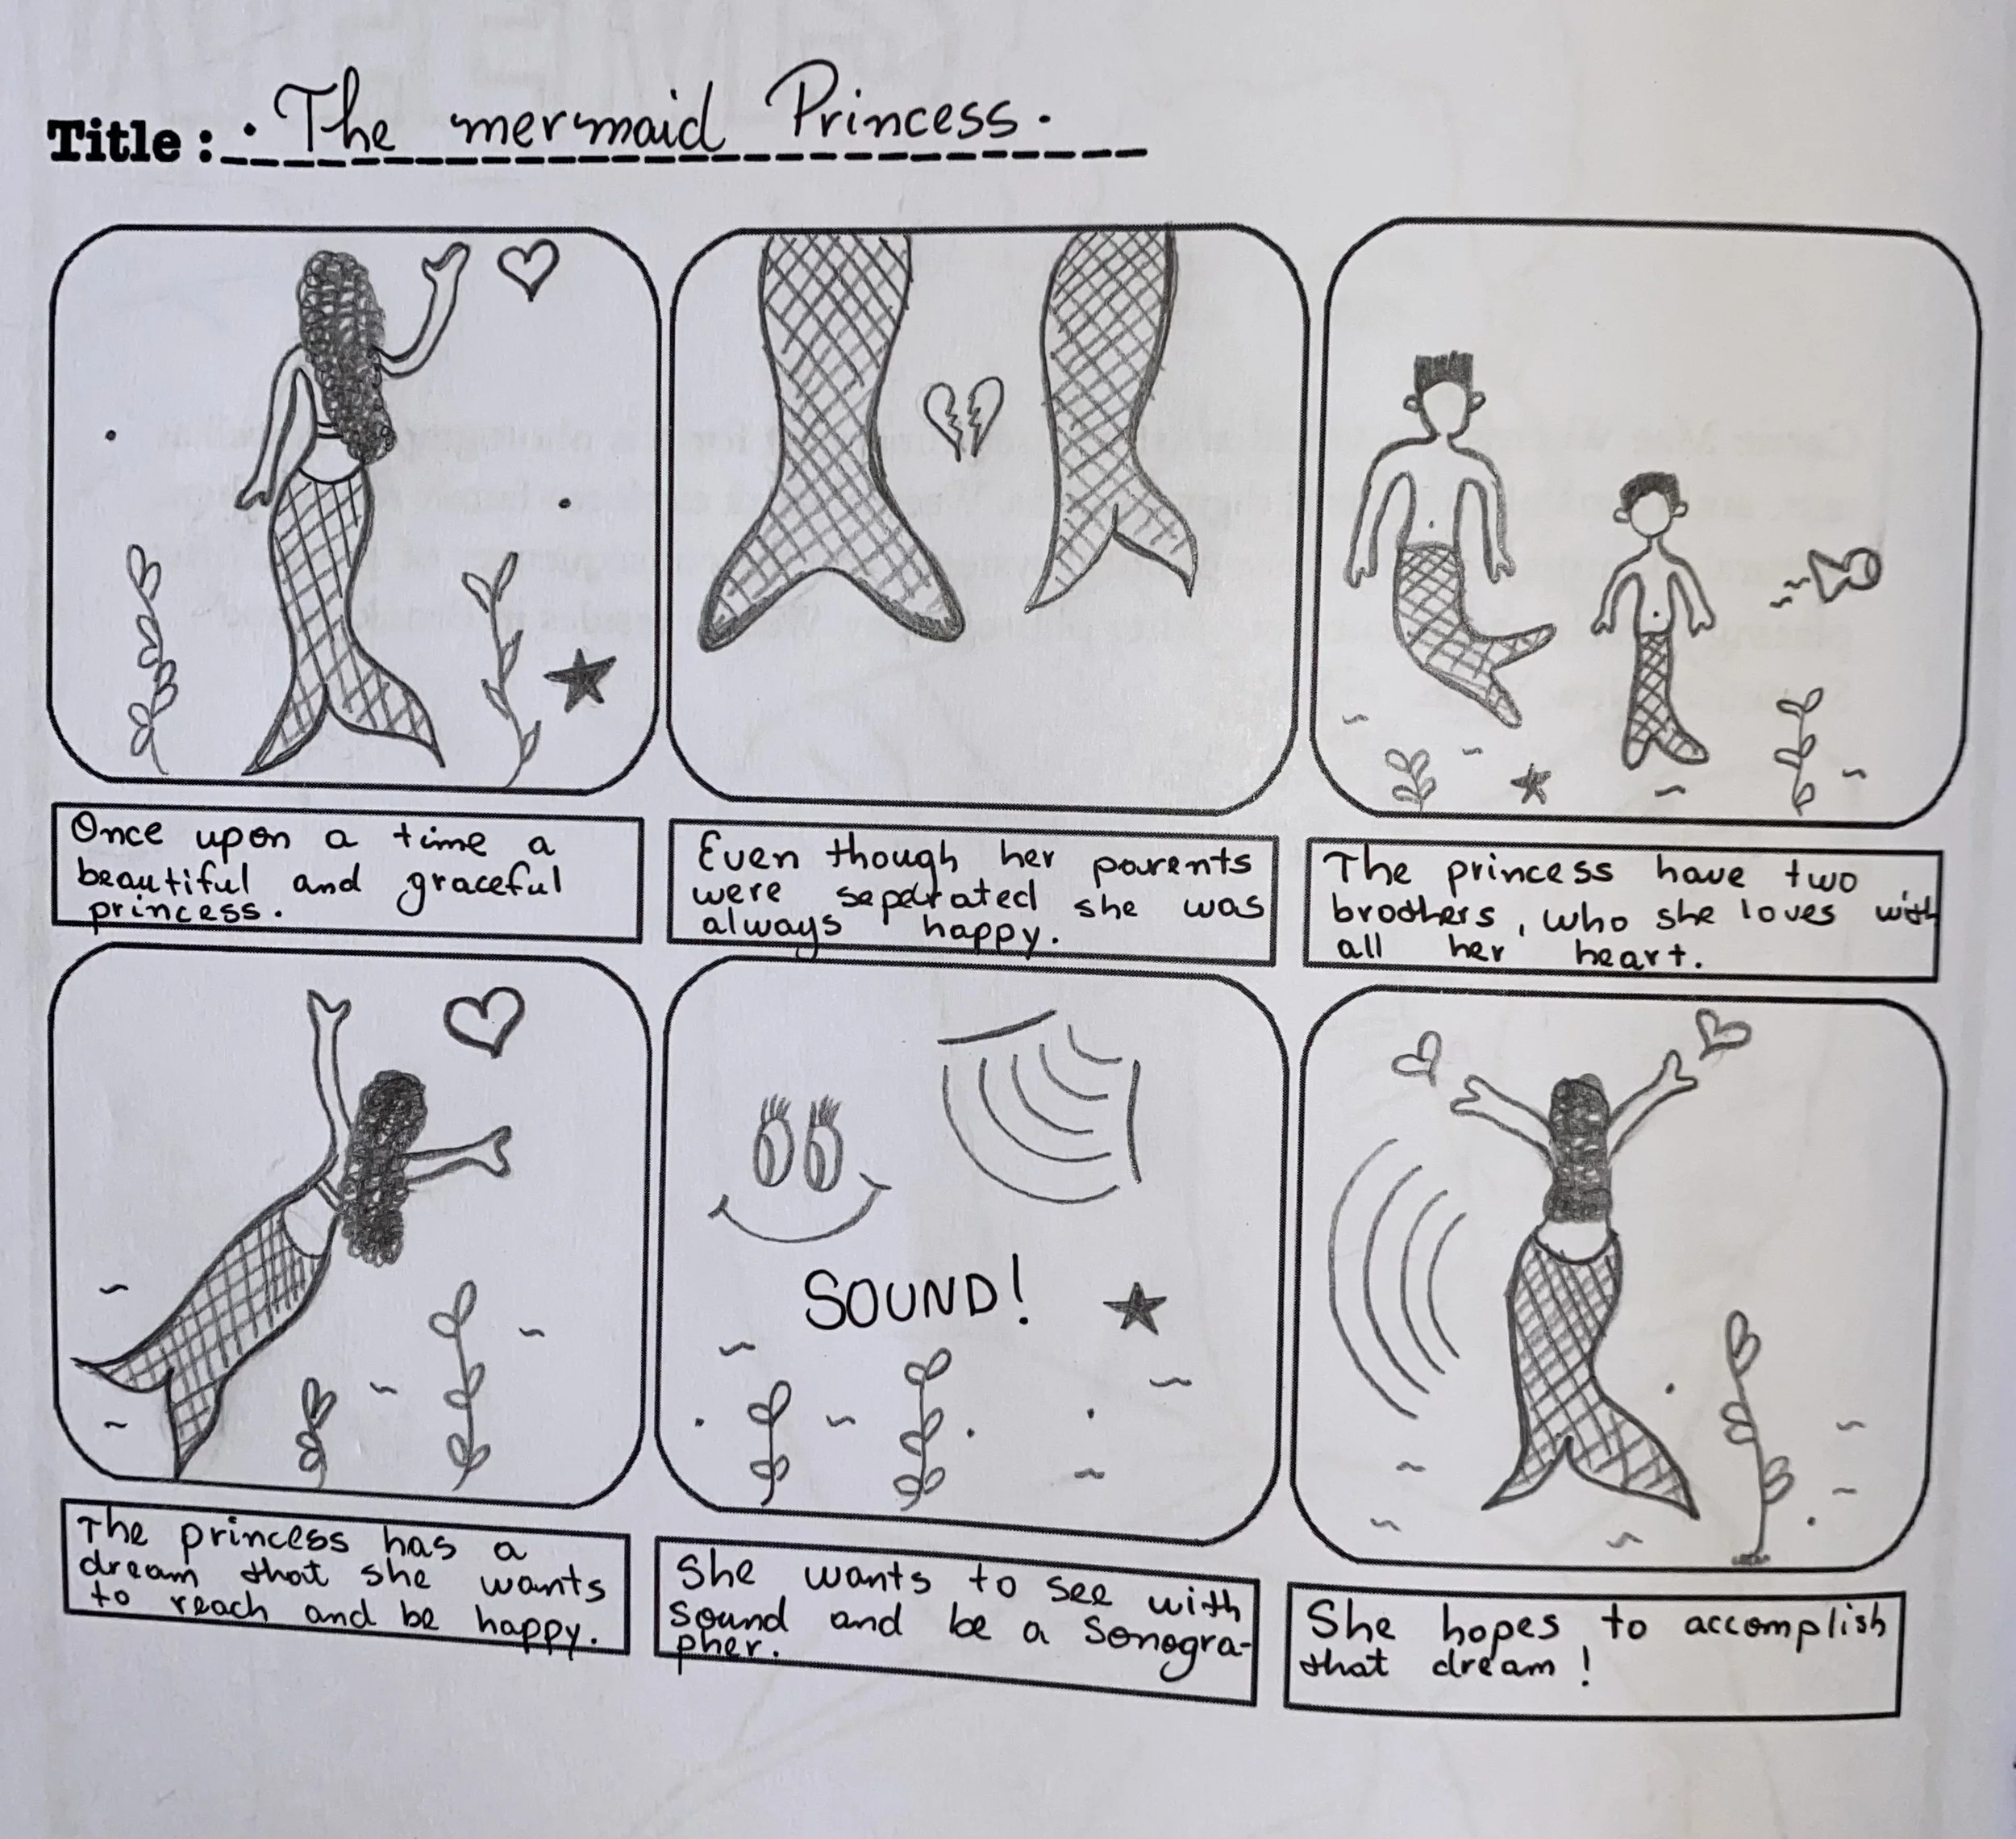 Title: · The mermaid Princess.
Once upon a time a
beautiful and graceful
princess.
Even though her parents
were sepetrated she was
always happy.
The princess have two
brothers, who she loves with
all her heart.
The princess has a
dream that she wants
to reach and be happy.
SOUND!
She wants to see with
sound and be a Sonogra-
pher.
She hopes to accomplish
that dream!